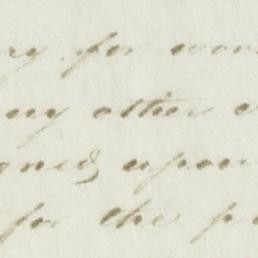 ry for wor
any other
oned upon
for the p